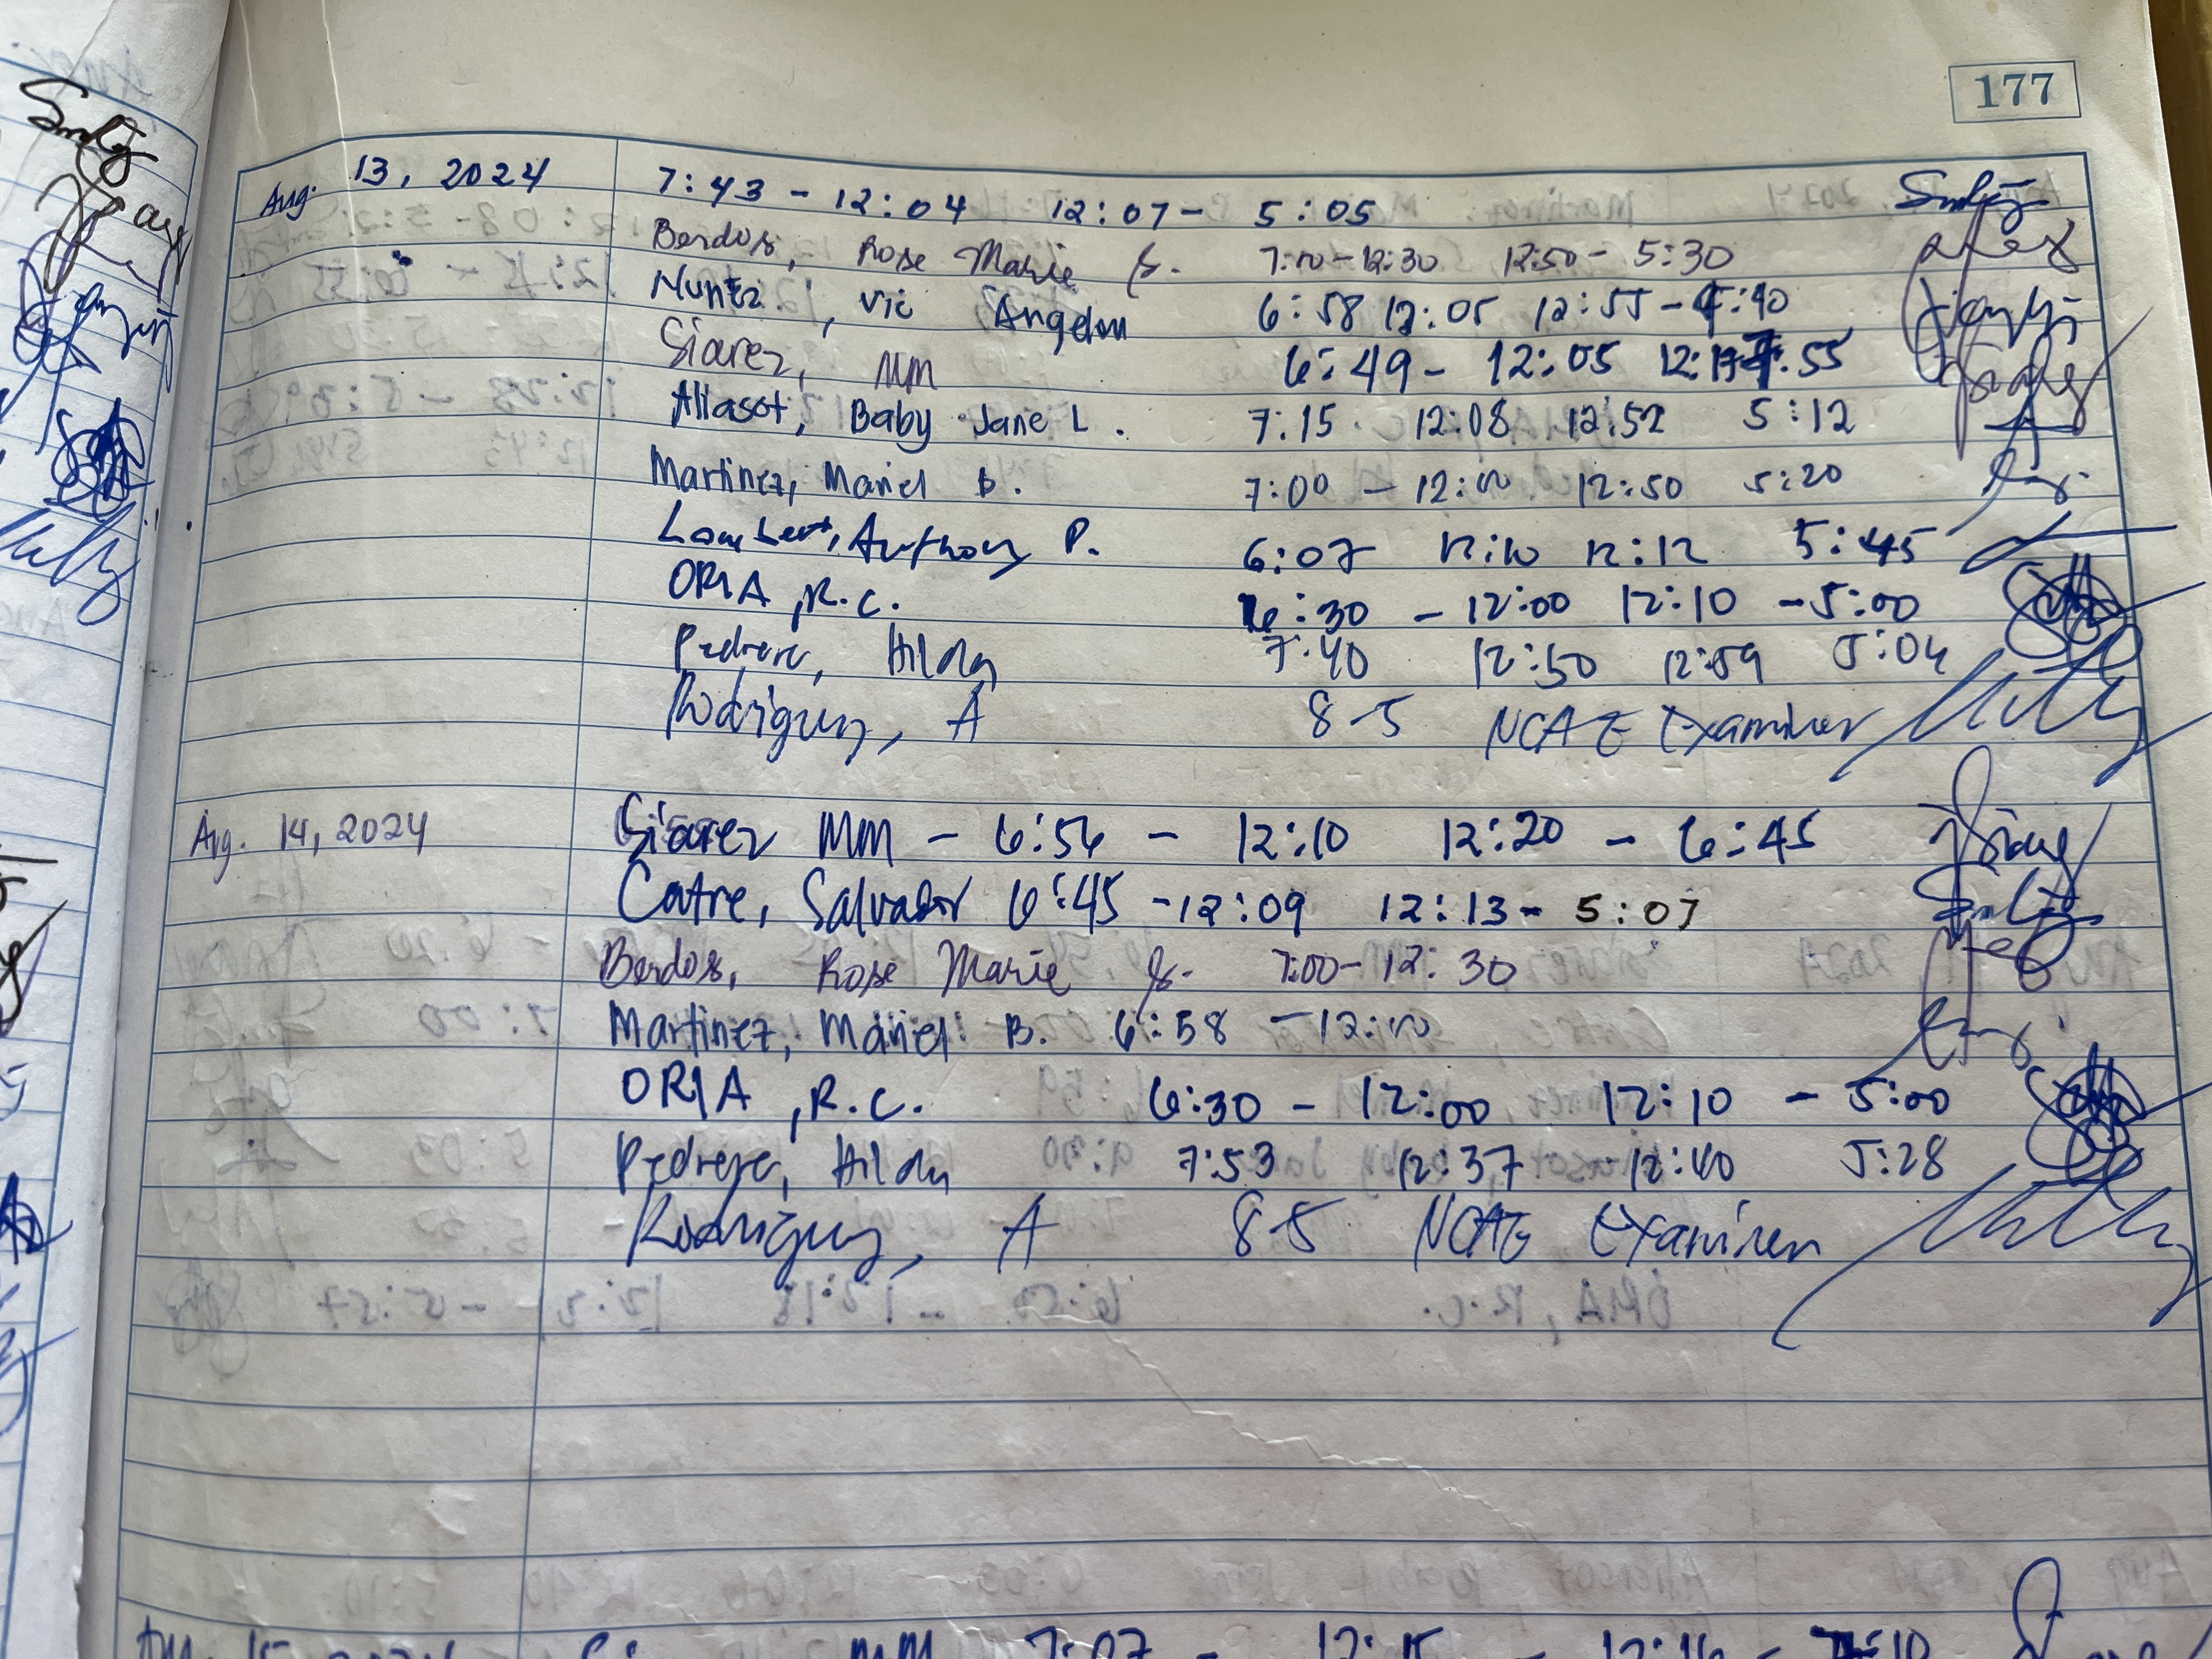 177
Aug. 13, 2024 7:43 - 12:04 12:07 - 5:05
Berdos, Rose Marie 7:00-12:30 12:50 - 5:30
Nuñez, Vic Angelou 6:58 12:05 12:55 - :40
Siarez, MM 6:49 - 12:05 :55
Aliasot, Baby Jane L. 7:15 12:08 12:52 5:12
Martinez, Mariel B. 7:00 - 12:10 12:50 5:20
Lambert, Anthony P. 6:07 12:10 12:12 5:45
ORIA, R.C. 6:30 - 12:00 12:10 - 5:00
Pedrera, Hilda 7:40 12:50 12:59 5:04
Rodriguez, A 8-5 NCAE Examiner
Aug. 14, 2024 Siarez MM - 6:56 - 12:10 12:20 - 6:45
Catre, Salvador 6:45 - 12:09 12:13 - 5:07
Berdos, Rose Marie 7:00 - 12:30
Martinez, Mariel B. 6:58 - 12:10
ORIA, R.C. 6:30 - 12:00 12:10 - 5:00
Pedrera, Hilda 7:53 12:37 12:40 5:28
Rodriguez, A 8-5 NCAE Examiner
MM 7:07 - 12:15 - 12:16 - :10